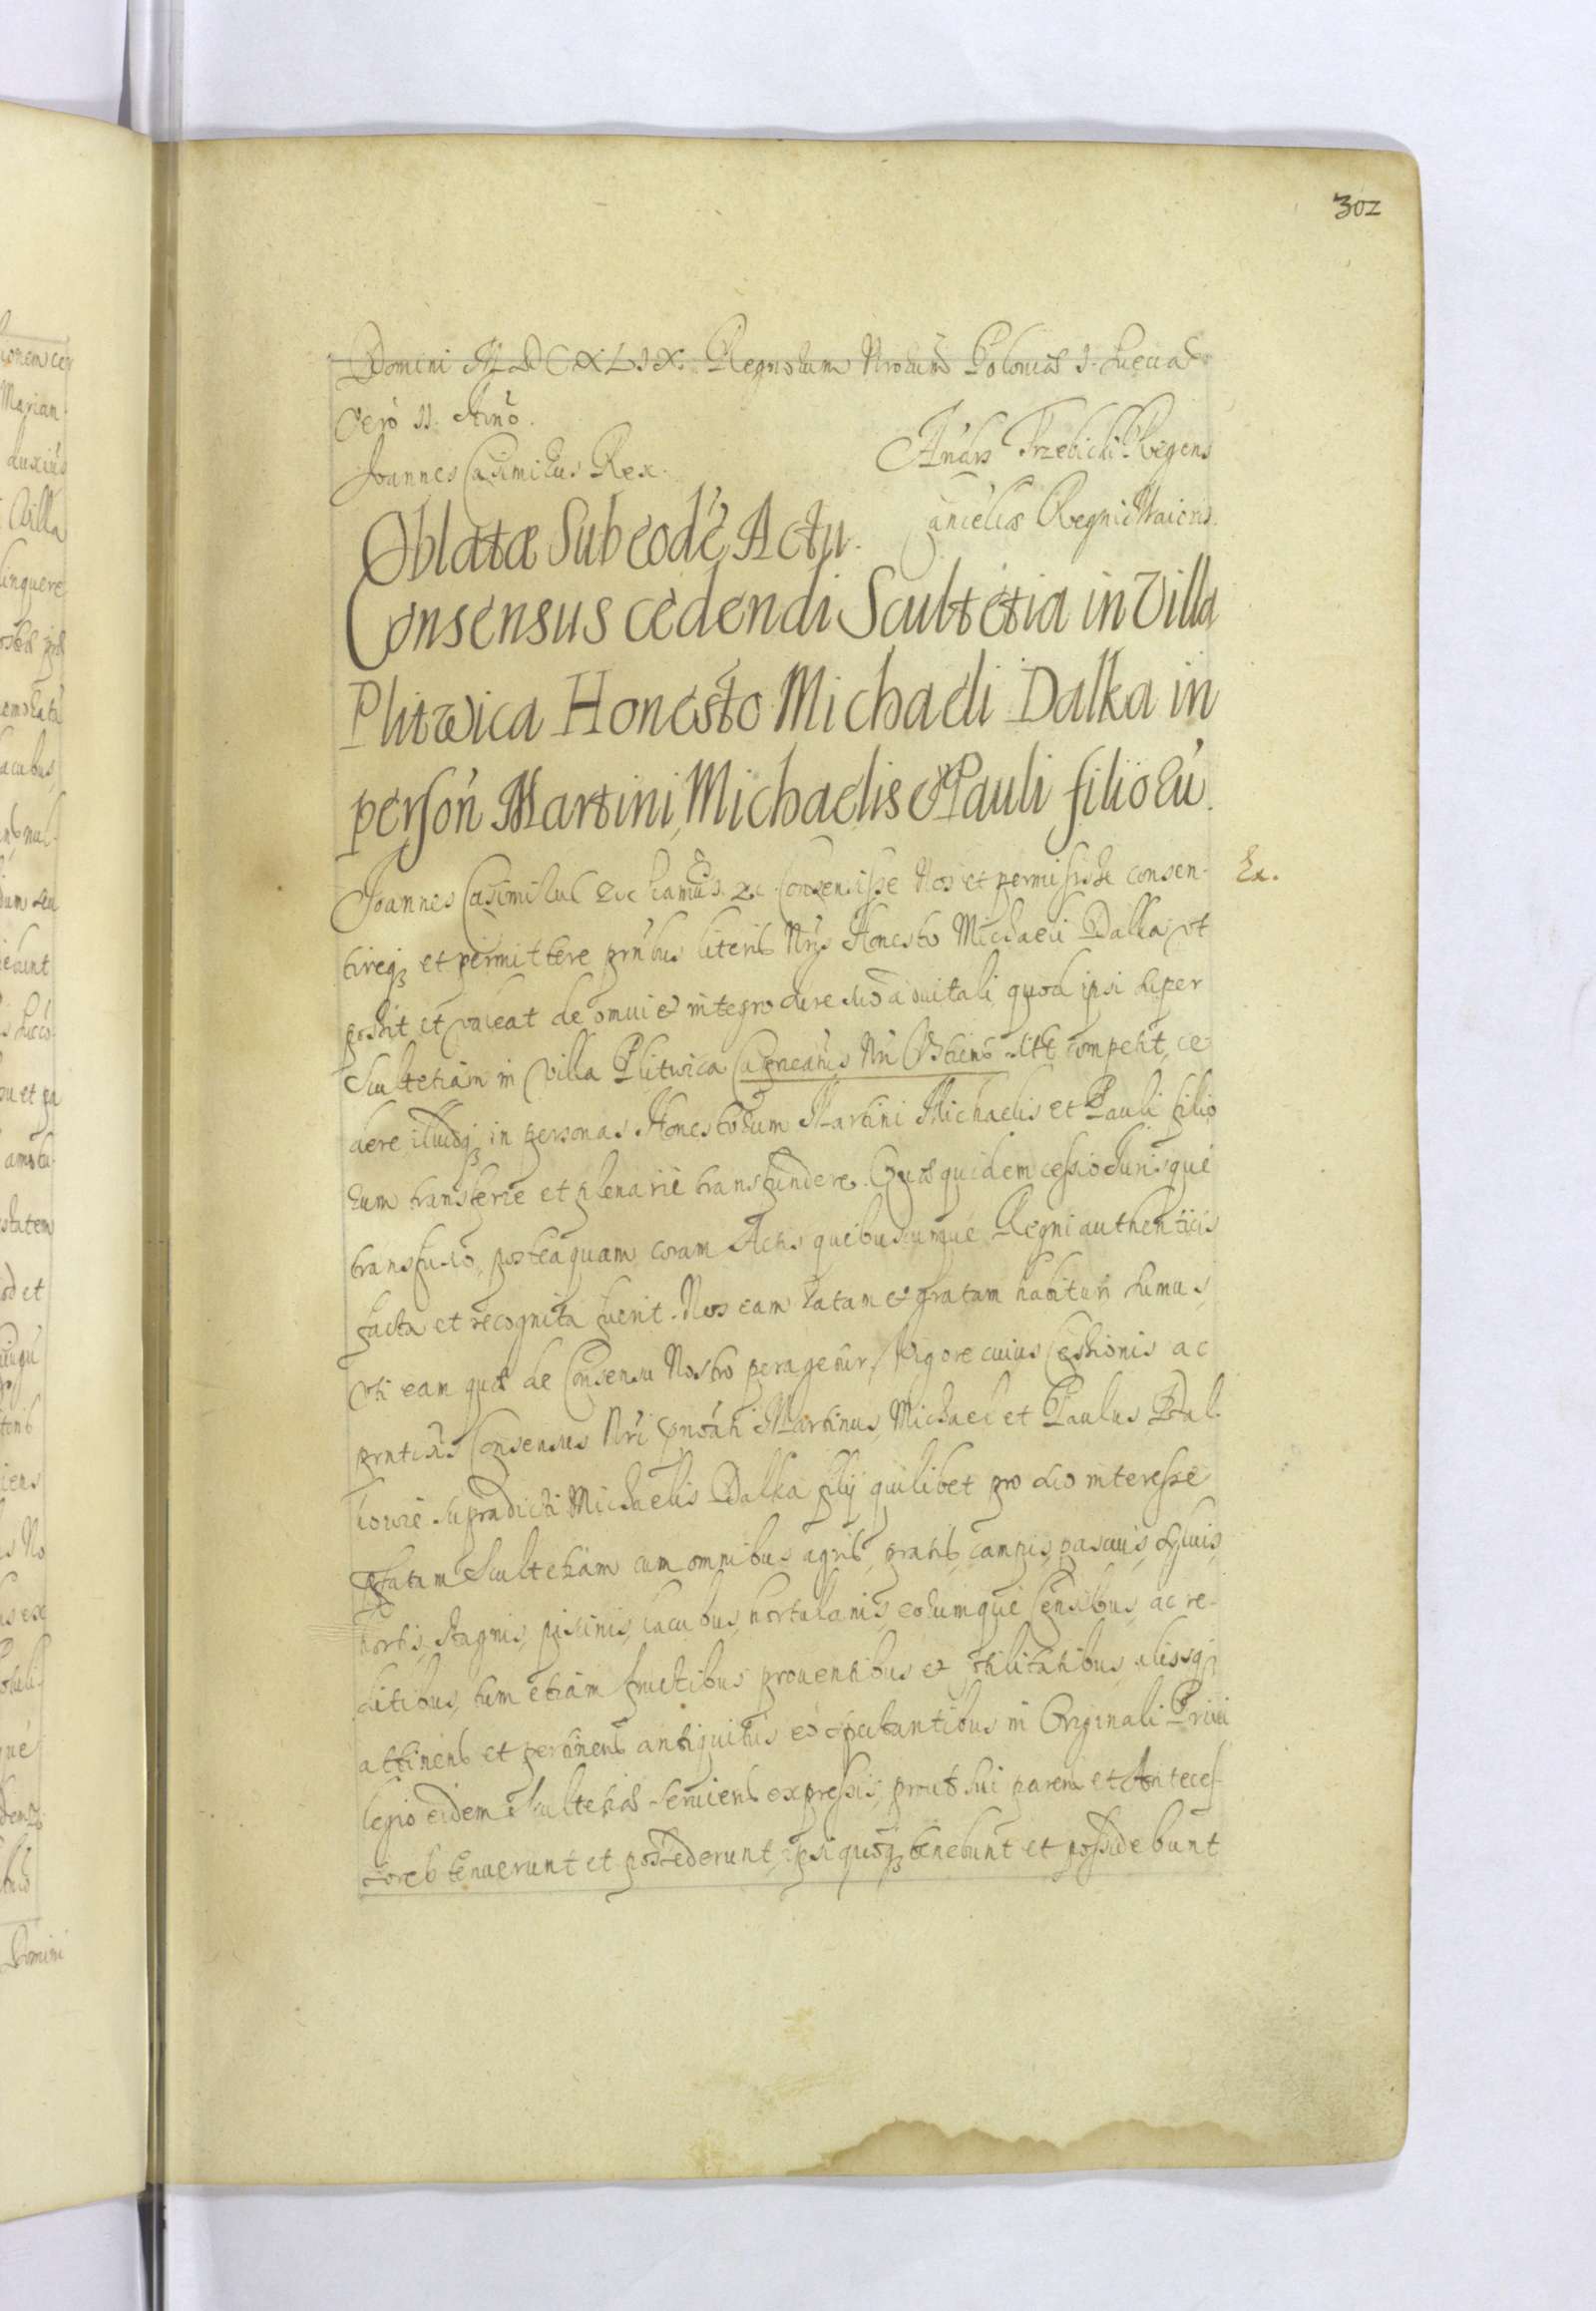 302
Domini MDCXLIX. Regnorum Nrorum Poloniæ I. Sueciæ
Vero II. Anno.
Joannes Casimirus Rex.
Andrs Trzebicki Regens
Cancelliæ Regni Maioris.
Oblatæ Sub eodé Actu.
Consensus cedendi Scultetia in Villa
Plitwica Honesto Michaeli Dalka in
person Martini, Michaelis & Pauli filiorú.
Joannes Casimirus &c. &c. Consensisse Nos et permisisse consen-
Ex.
tireq; et permittere prntbus literis Nrys Honesto Michaeli Dalka vt
possit et valeat de omni & integro iure suo aduitali quod ipsi super
Scultetiam in Villa Plitwica Capneatus Nri sitt competit, ce-
dere illudq; in personas Honestorum Martini Michaelis et Pauli filio
rum transferre et plenarie transfundere. Quæ quidem cessio Jurisque
transfusio, posteaquam coram Actis quibuscumque Regni authenticis
facta et recognita fuerit. Nos eam ratam & gratam habituri sumus,
Vti eam quæ de Consensu Nostro peragetur, Vigore cuius Cessionis ac
prntis Consensus Nri Martinus, Michael et Paulus Dal-
kowie supradicti Michaelis Dalka filij quilibet pro suo interesse
pfatam Scultetiam cum omnibus agris, pratis, campis, pascuis, syluis,
hortis, stagnis, piscinis, lacubus, hortulanis, eorumque Censibus, ac re-
ditibus, tum etiam fructibus prouentibus & vtilitatibus alijsq;
attinens et pertinens antiquitus eo spectantibus in Originali Priui
legio eidem Scultetiæ seruiens expressis, prout sui parens et Anteces-
sores tenuerunt et possederunt, ipsi quoq; tenebunt et possidebunt